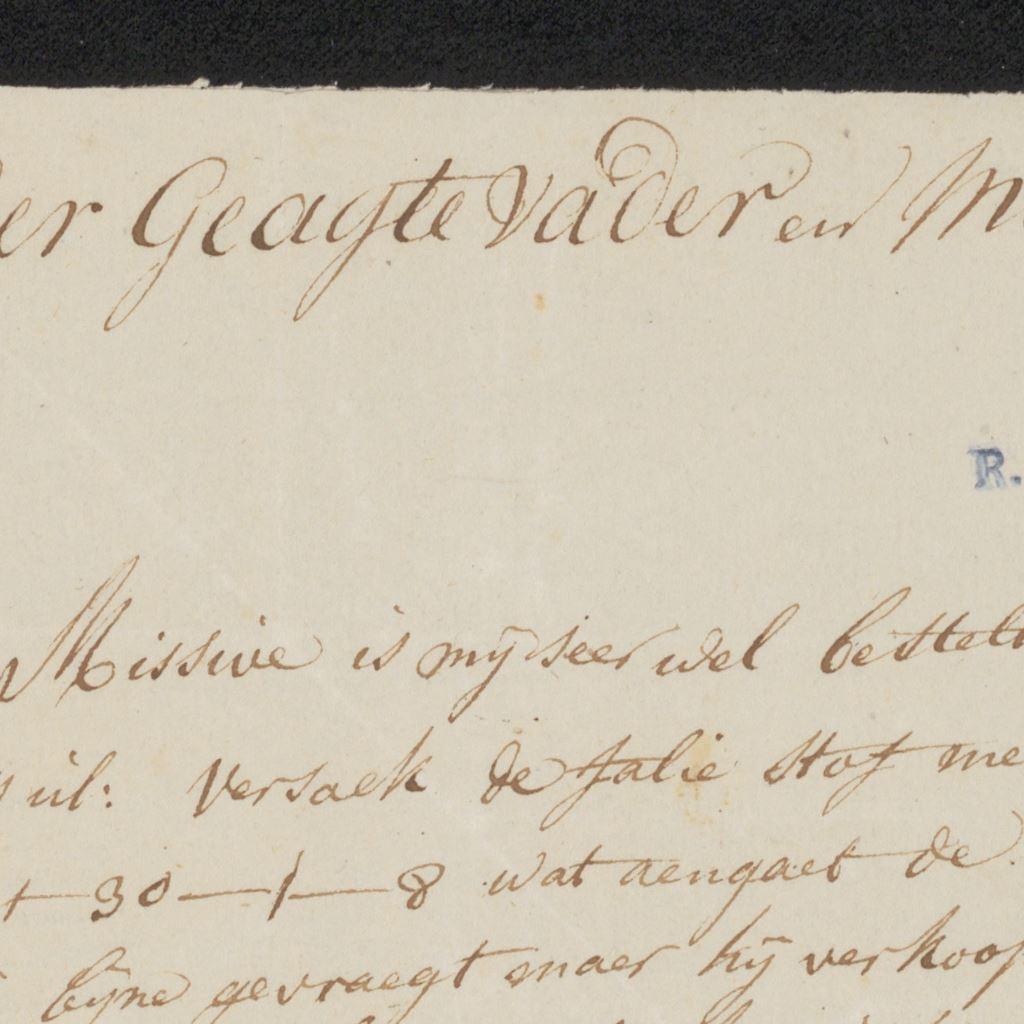 er Geagte Vader en M
R.
Missive is mÿ seer wel bestelt
ul: Versoek de falie Stof me
30 — 1 — 8 wat aengaet de
bÿne gevraegt maer hÿ verkoop